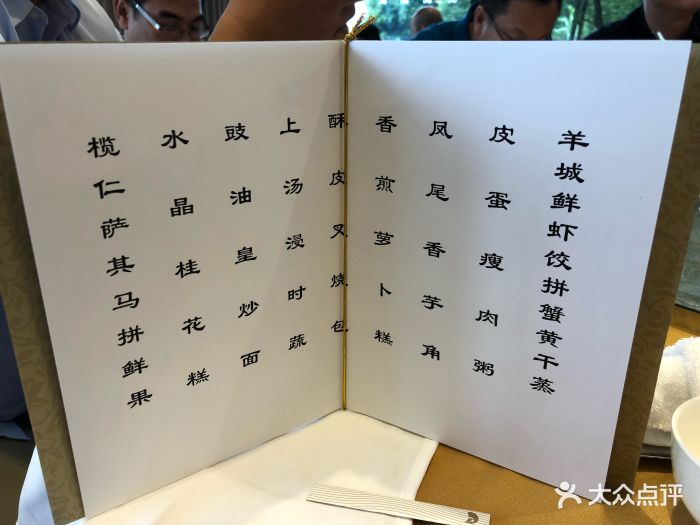 羊城鲜虾饺拼蟹黄干蒸
皮蛋瘦肉粥
凤尾香芋角
香煎萝卜糕
酥皮叉烧包
上汤浸时蔬
豉油皇炒面
水晶桂花糕
榄仁萨其马拼鲜果
大众点评